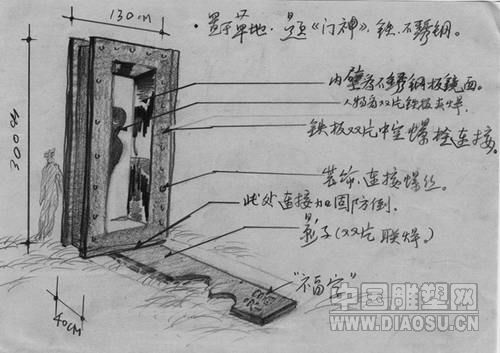 130cm
·置于草地。景《门神》, 铁、不锈钢。
300cm
内壁为不锈钢板镜面。
人物为双片铁板夹焊。
铁板双片中空螺栓连接。
装饰、连接螺丝。
此处连接加固防倒.
影子(双片联焊。)
"福字"
40cm
中国雕塑网
WWW.DIAOSU.CN